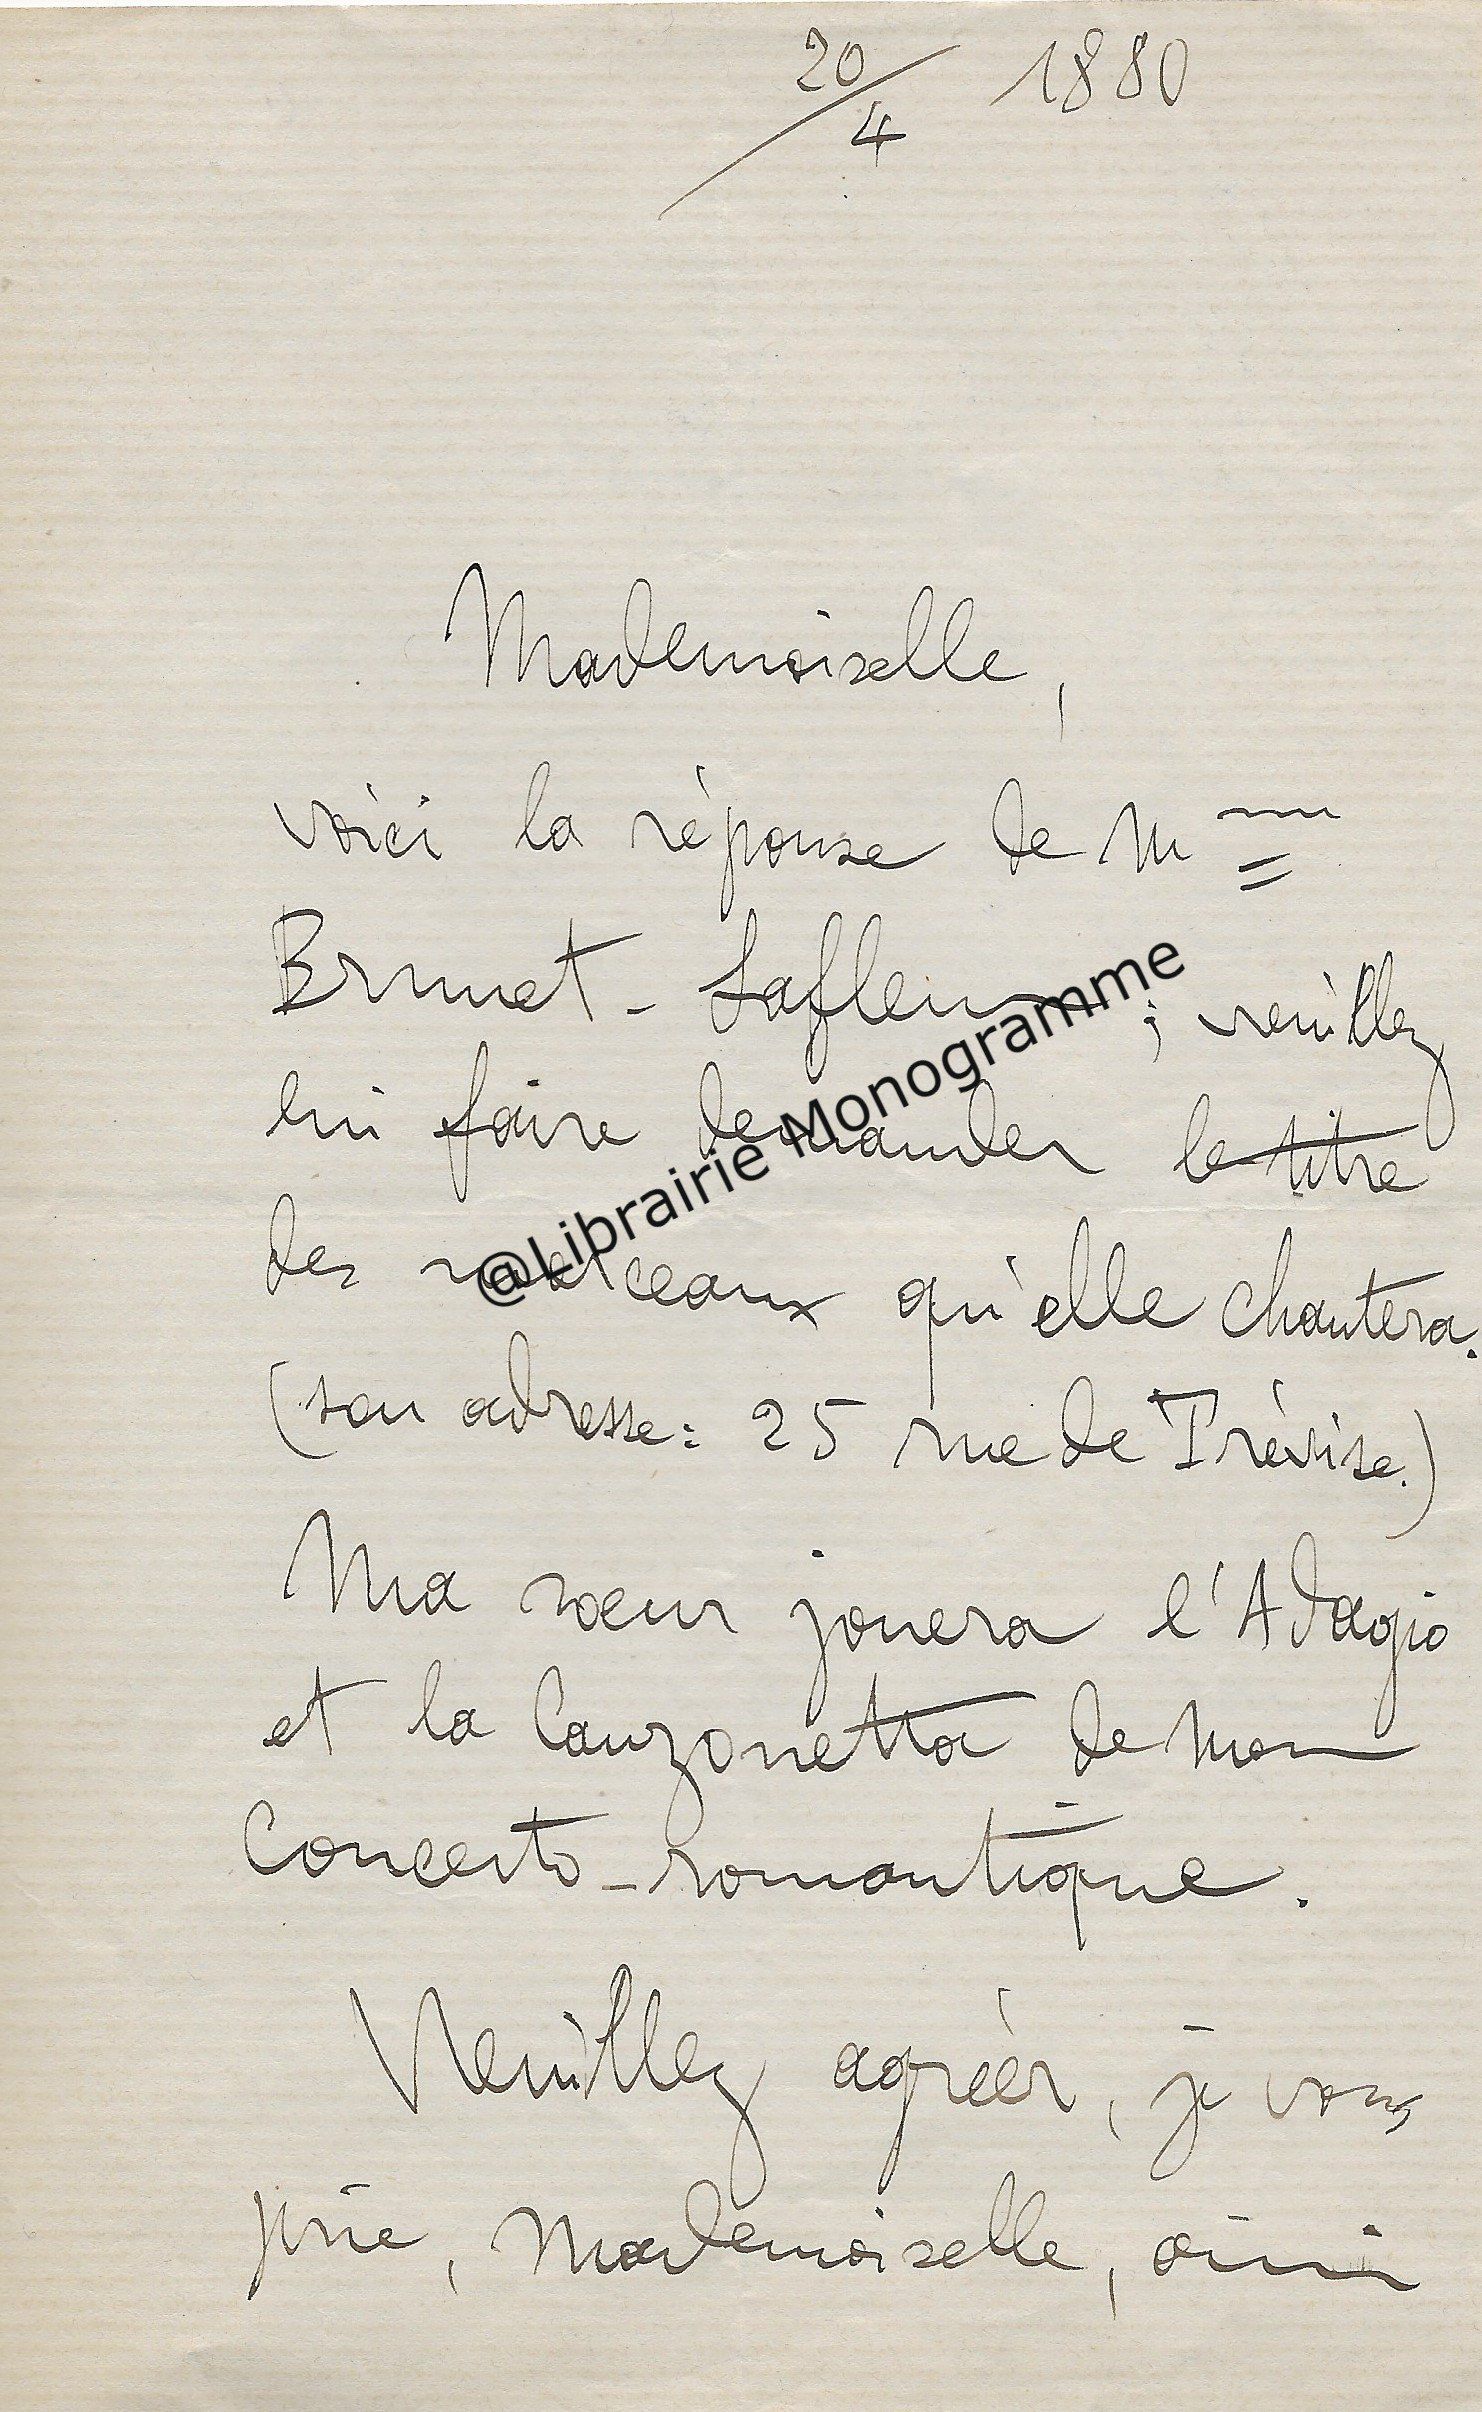 20/4 1880
Mademoiselle,
voici la réponse de Mme
Brunet-Lafleur ; veuillez
lui faire demander le titre
des morceaux qu'elle chantera.
(son adresse: 25 rue de Trévise.)
Ma sœur jouera l'Adagio
et la Canzonetta de mon
Concerto-romantique.
Veuillez agréer, je vous
prie, Mademoiselle, ainsi
@Librairie Monogramme